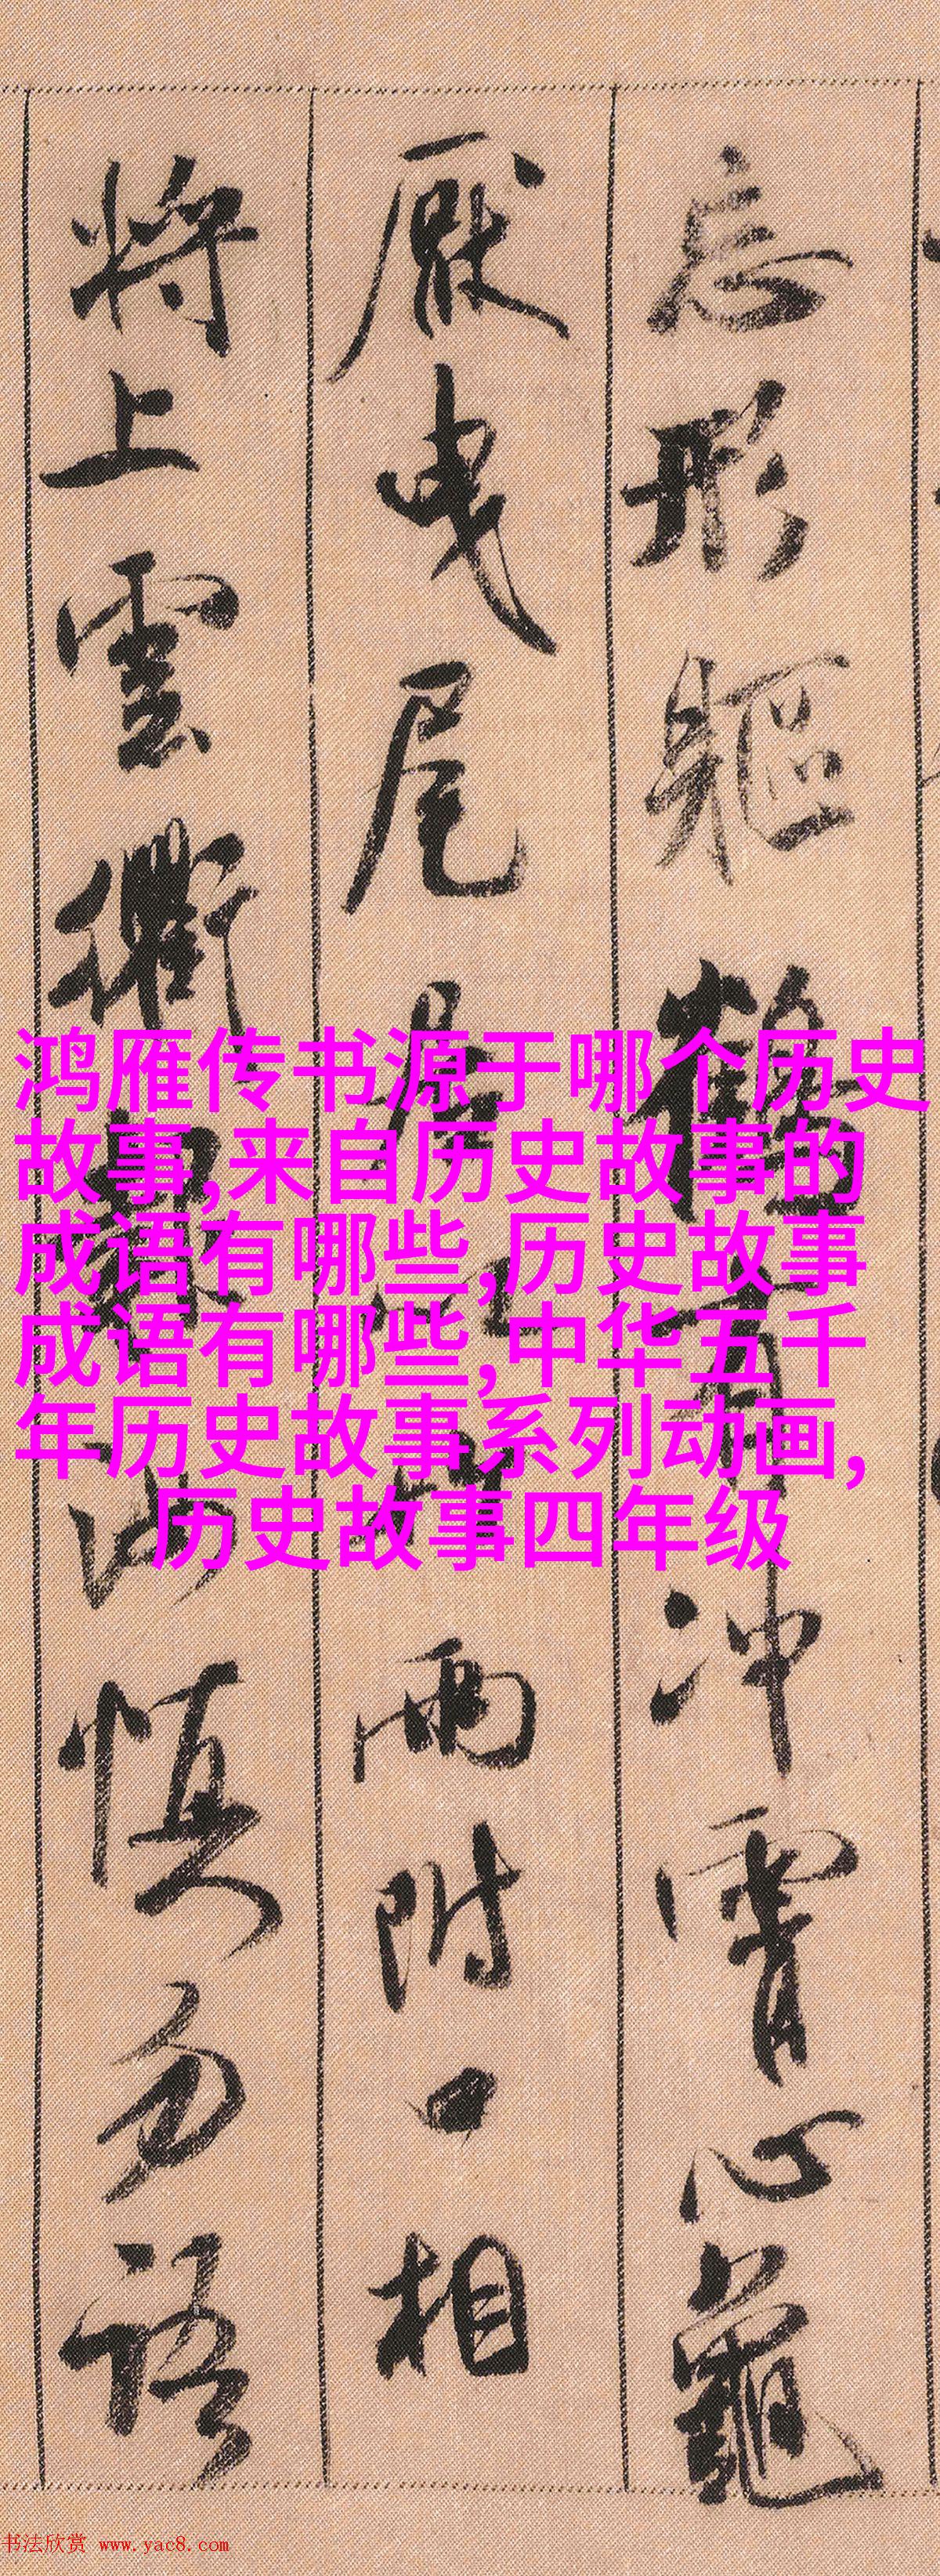 忘形軀鶴有冲霄心龜
厭曳尾居以竹兩附口相
將上雲衢報汝慎勿語
鸿雁传书源于哪个历史
故事,来自历史故事的
成语有哪些,历史故事
成语有哪些,中华五千
年历史故事系列动画,
历史故事四年级
书法欣赏 www.yac8.com